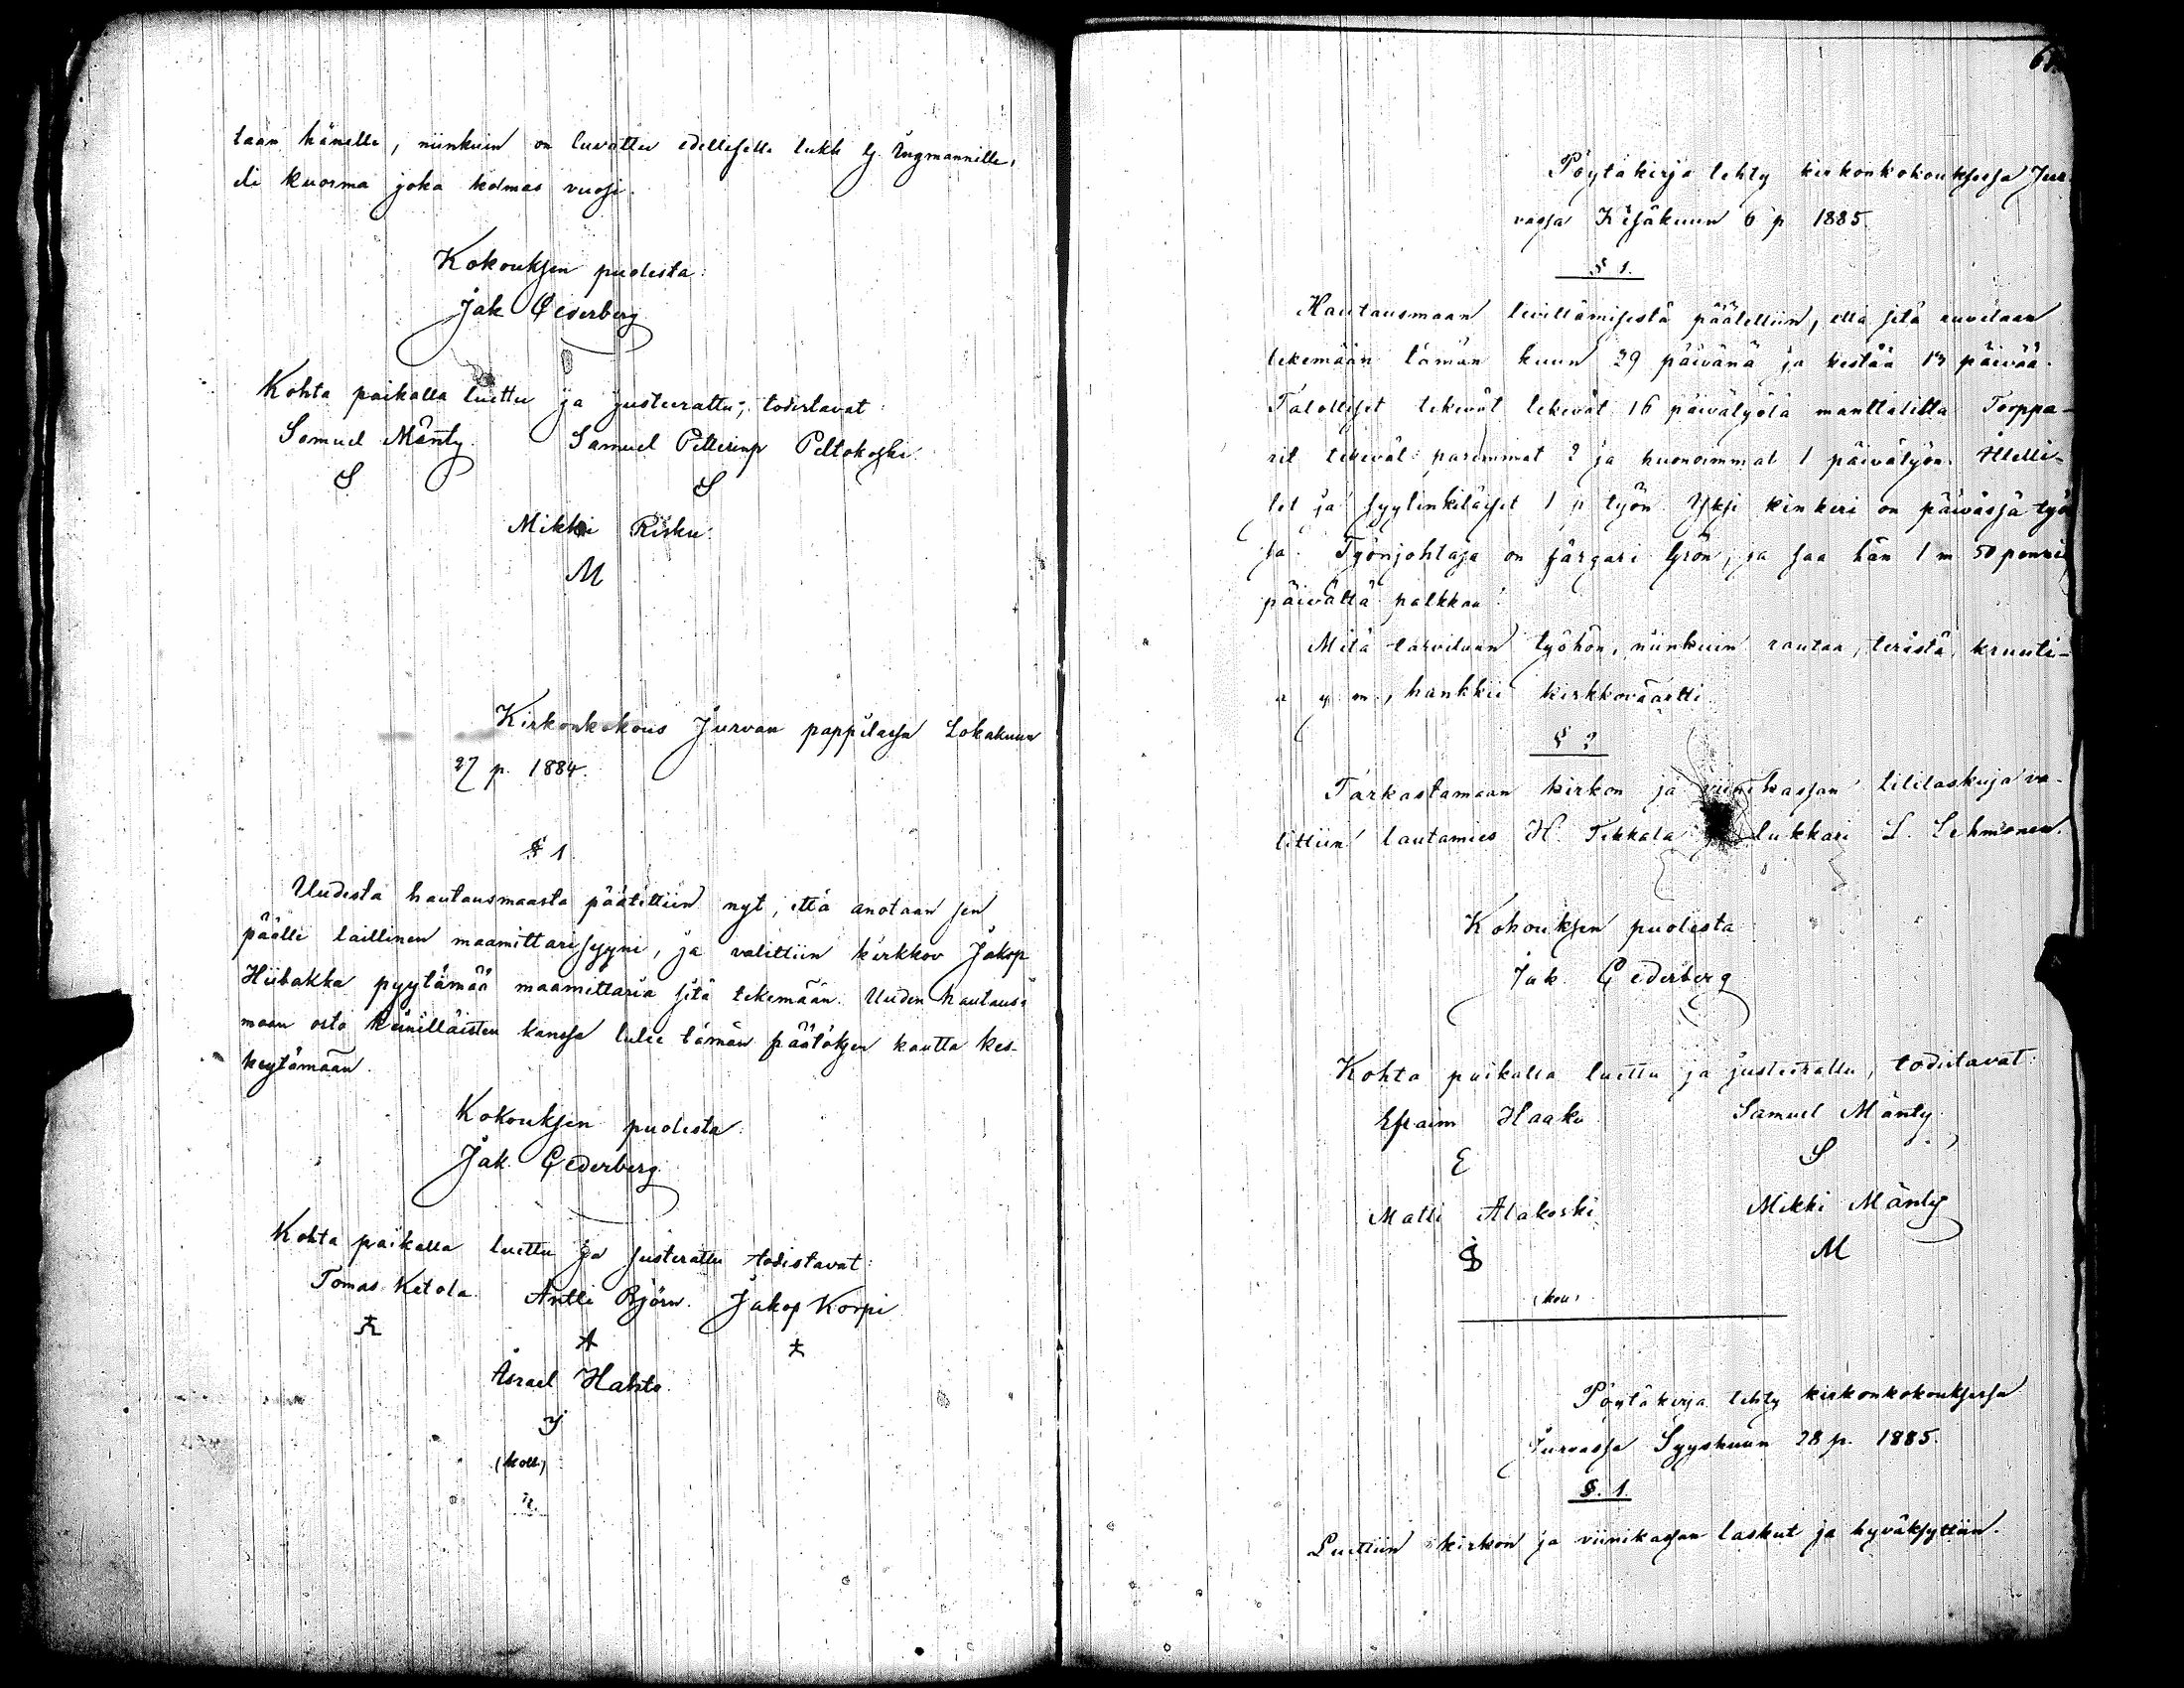 taan hänelle, niinkuin on luvattu edelliselle lukk G. Ingmannille,
eli kuorma joka kolmas vuosi.
Kokouksen puolesta:
Jak Cederberg
Kohta paikalla luettu ja justeerattu; todistavat
Samuel Mänty. Samuel Petterinp Peltokoski
S S
Mikki Risku.
M
Kirkonkokous Jurvan pappilassa Lokakuun
27 p. 1884.
§ 1
Uudesta hautausmaasta päätettiin nyt, että anotaan sen
päälle laillinen maamittarisyyni, ja valittiin kirkkov Jakop
Hiibakka pyytämää maamittaria sitä tekemään. Uuden hautaus-
maan osto kanssa tulee tämän päätöksen kautta kes-
keytämään.
Kokouksen puolesta
Jak. Cederberg
Kohta paikalla luettu ja justerattu todistavat:
Tomas Ketola. Antti Björn. Jakop Korpi
A
Israel Hahto.
(koll)
6
Pöytäkirja tehty kirkonkokouksessa Jur-
vassa Kesäkuun 6 p 1885.
§ 1.
Hautausmaan levittämisestä päätettiin, että sitä ruvetaan
tekemään tämän kuun 29 päivänä ja kestää 13 päivää.
Talolliset tekevät tekevät 16 päivätyötä manttalilta Torppa-
rit tekevät paremmat 2 ja huonommat 1 päivätyön. Itelli-
set ja syytinkiläiset 1 p työn Yksi kinkeri on päivässä työs
sä. Työnjohtaja on färgari Grön, ja saa hän 1 m 50 penniä
päivältä palkkaa.
Mitä tarvitaan työhön, niinkuin rautaa, terästä, kruuti-
a y m, hankkii kirkkoväärtti
§ 2
Tarkastamaan kirkon ja viinikassan tililaskuja va-
littiin lautamies H. Tikkala ja lukkari L. Lehmonen.
Kokouksen puolesta
Jak Cederberg
Kohta paikalla luettu ja justeerattu, todistavat:
Efraim Haako Samuel Mänty
E S
Matti Alakoski Mikki Mänty
M
Pöytäkirja tehty kirkonkokouksessa
Jurvassa Syyskuun 28 p. 1885.
§. 1.
Luettiin kirkon ja viinikassan laskut ja hyväksyttiin.